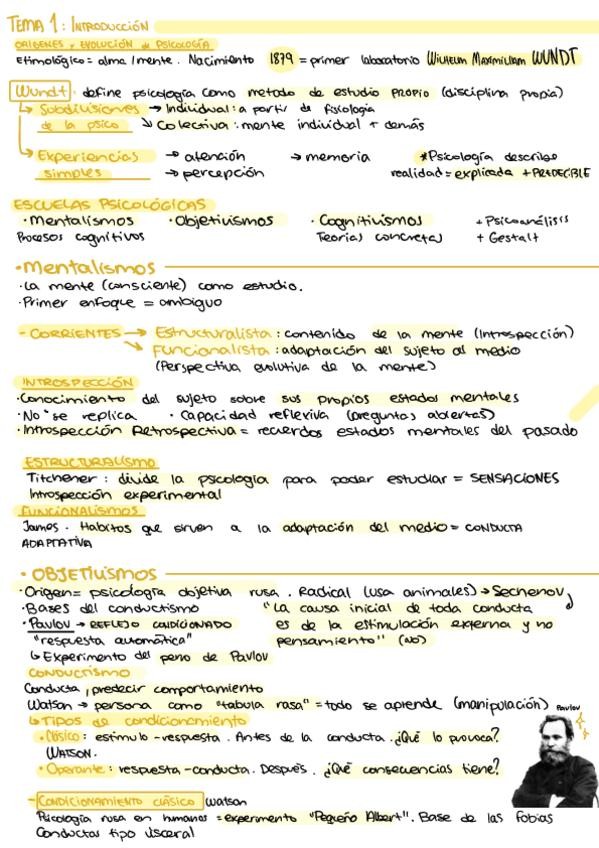 TEMA 1: INTRODUCCIÓN
ORIGENES Y EVOLUCIÓN de PSICOLOGÍA
Etimológico = alma / mente. Nacimiento 1879 = primer laboratorio WILHELM MAXIMILIAM WUNDT
Wundt: define psicología como metodo de estudio PROPIO (disciplina propia)
↳ Subdivisiones → Individual: a partir de fisiología
de la psico ↘ Colectiva: mente individual + demás
↳ Experiencias → atención → memoria *Psicología describe
simples → percepción realidad = explicada + PREDECIBLE
ESCUELAS PSICOLÓGICAS
· Mentalismos · Objetivismos · Cognitivismos + Psicoanálisis
Procesos cognitivos Teorías concretas + Gestalt
· Mentalismos
· La mente (consciente) como estudio.
· Primer enfoque = ambiguo
- CORRIENTES → Estructuralista: contenido de la mente (Introspección)
↘ Funcionalista: adaptación del sujeto al medio
(Perspectiva evolutiva de la mente)
INTROSPECCIÓN
· Conocimiento del sujeto sobre sus propios estados mentales
· No se replica · Capacidad reflexiva (preguntas abiertas)
· Introspección Retrospectiva = recuerdos estados mentales del pasado
ESTRUCTURALISMO
Titchener: divide la psicología para poder estudiar = SENSACIONES
Introspección experimental
FUNCIONALISMOS
James. Habitos que sirven a la adaptación del medio = CONDUCTA
ADAPTATIVA
· OBJETIVISMOS
· Origen = psicología objetiva rusa. Radical (usa animales) → Sechenov
· Bases del conductismo "La causa inicial de toda conducta
· Pavlov → REFLEJO CONDICIONADO es de la estimulación externa y no
"respuesta automática" pensamiento" (NO)
↳ Experimento del perro de Pavlov
CONDUCTISMO
Conducta, predecir comportamiento
Watson → persona como "tabula rasa" = todo se aprende (manipulación) Pavlov
↳ TIPOS de condicionamiento
· Clásico: estimulo - respuesta. Antes de la conducta. ¿Qué lo provoca?
WATSON.
· Operante: respuesta - conducta. Después. ¿Qué consecuencias tiene?
- CONDICIONAMIENTO CLÁSICO Watson
Psicología rusa en humanos = experimento "Pequeño Albert". Base de las fobias
Conductas tipo visceral